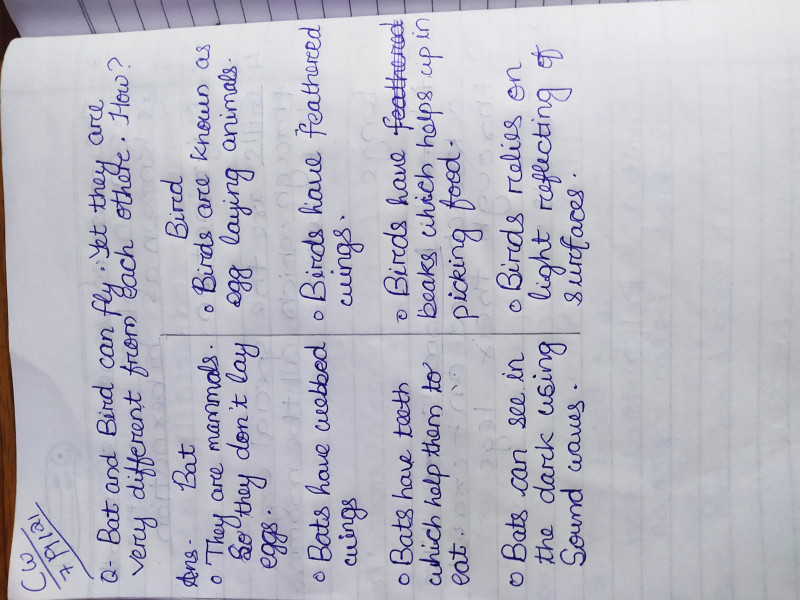 CW
7/9/21
Q- Bat and Bird can fly. Yet they are
very different from each other. How?
Ans- Bat
o They are mammals.
So they don't lay
eggs.
o Bats have webbed
wings
o Bats have teeth
which help them to
eat.
o Bats can see in
the dark using
Sound waves.
Bird
o Birds are known as
egg laying animals.
o Birds have feathered
wings.
o Birds have feathered
beaks which helps up in
picking food.
o Birds relies on
light reflecting of
surfaces.